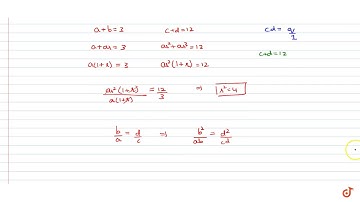 a+b=3 c+d=12 cd= q/2
a+ar=3 ar²+ar³=12 c+d=12
a(1+r)=3 ar²(1+r)=12
ar²(1+r)/a(1+r) = 12/3 ⇒ r²=4
b/a = d/c ⇒ b²/ab = d²/cd